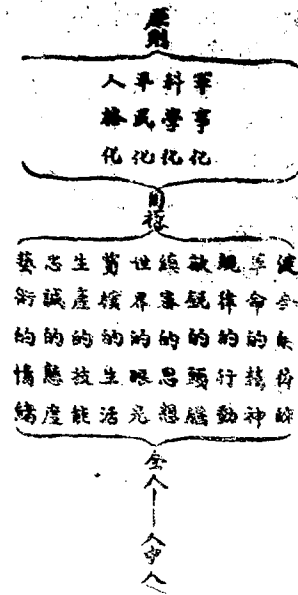 原則
軍事化
科學化
平民化
人格化
目標
的
革命的精神
規律的行動
敏銳的頭腦
縝密的思想
世界的眼光
質樸的生活
生產的技能
忠誠的態度
藝術的情緒
全人——人中人